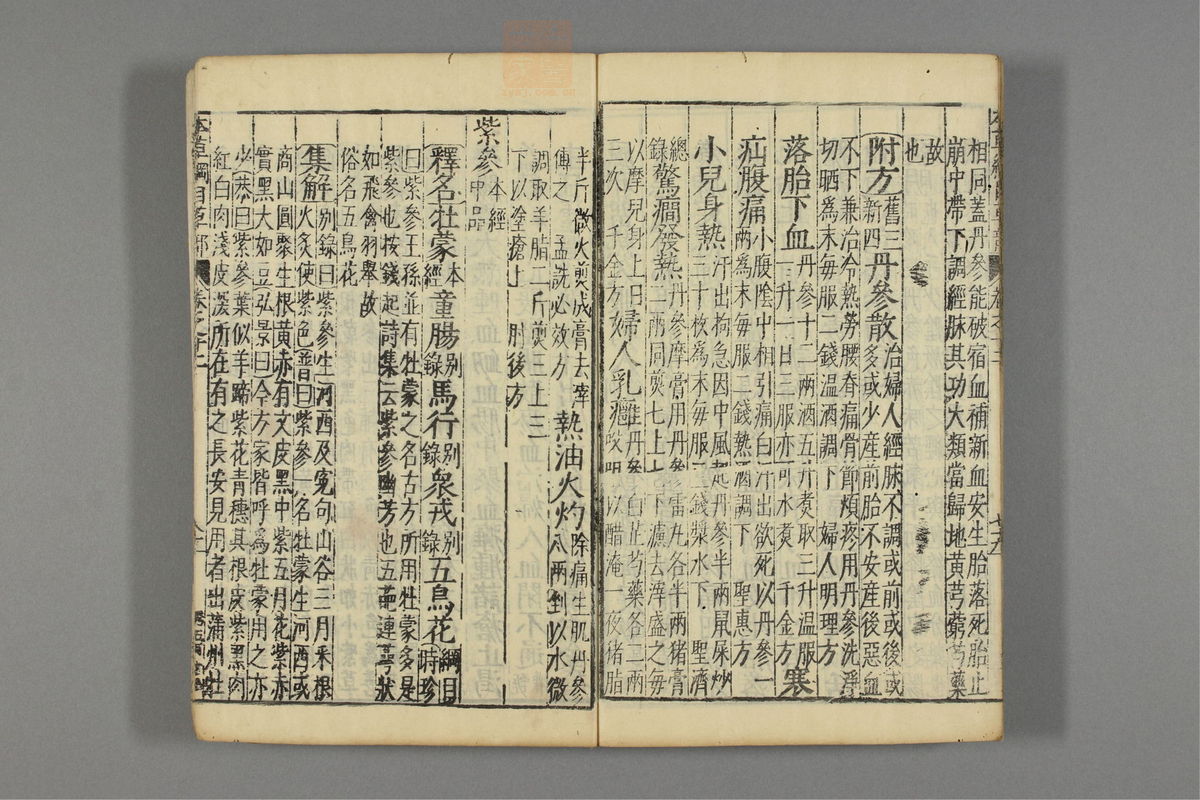 相同蓋丹參能破宿血補新血安生胎落死胎止
崩中帶下調經脉其功大類當歸地黃芎藭芍藥
故
也
附方舊三新四丹參散治婦人經脉不調或前或後或
多或少産前胎不安産後惡血
不下兼治冷熱勞腰脊痛骨節煩疼用丹參洗淨
切晒爲末每服二錢温酒調下 婦人明理方
落胎下血丹參十二兩酒五升煮取三升温服
一升一日三服亦可水煮 千金方 寒
疝腹痛小腹陰中相引痛白汗出欲死以丹參一
兩爲末每服二錢熱酒調下 聖惠方
小兒身熱汗出拘急因中風起丹參半兩鼠屎炒
三十枚爲末每服三錢漿水下 聖濟
總
錄驚癇發熱丹參摩膏用丹參雷丸各半兩猪膏
二兩同煎七上七下濾去滓盛之每
以摩兒身上日
三次 千金方婦人乳癰丹參白芷芍藥各二兩
㕮咀以醋淹一夜猪脂
半斤微火煎成膏去滓
傅之 孟詵必效方 熱油火灼除痛生肌丹參
八兩剉以水微
調取羊脂二斤煎三上三
下以塗瘡上 肘後方
紫參本經
中品
釋名牡蒙本經童腸别錄馬行别錄衆戎别錄五鳥花綱目時珍
曰紫參王孫並有牡蒙之名古方所用牡蒙多是
紫參也按錢起詩集云紫參幽芳也五葩連萼狀
如飛禽羽舉故
俗名五鳥花
集解别錄曰紫參生河西及冤句山谷三月采根
火炙使紫色普曰紫參一名牡蒙生河西或
商山圓聚生根黃赤有文皮黑中紫五月花紫赤
實黑大如豆弘景曰今方家皆呼爲牡蒙用之亦
少恭曰紫參葉似羊蹄紫花青穗其根皮紫黑肉
紅白肉淺皮深所在有之長安見用者出蒲州牡
本草綱目草部 卷之十二